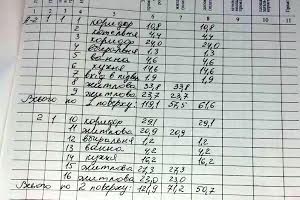 1 2 3 4 5 6 7 8 9 10 11
8-2 1 1 1 коридор 10,8 10,8
2 котельня 4,4 4,4
3 коридор 24,0 24,0
4 вбиральня 1,3 1,3
5 ванна 4,6 4,6
6 кухня 14,6 14,6
7 вхід в підвал 1,9 1,9
8 житлова 33,8 33,8
9 житлова 23,7 23,7
Всього по 1 поверху: 119,1 57,5 61,6
2 1 10 коридор 29,1 29,1
11 житлова 20,9 20,9
12 вбиральня 1,2 1,2
13 ванна 4,2 4,2
14 кухня 16,2 16,2
15 житлова 27,3 27,3
16 житлова 23,0 23,0
Всього по 2 поверху: 121,9 71,2 50,7